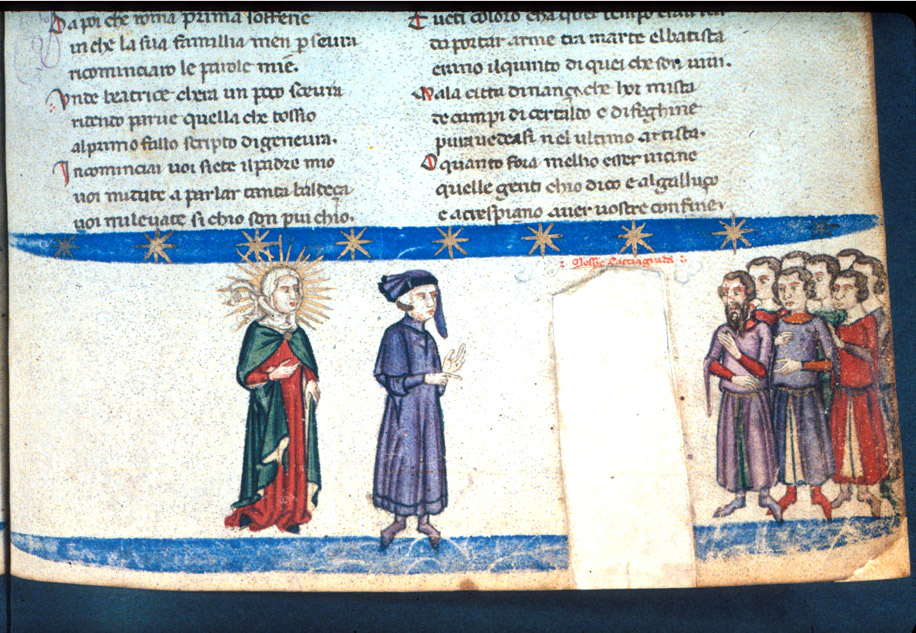 Da poi che roma prima sofferie
in che la sua famillia men p seura
ricominciaro le parole mie.
Unde beatrice chera un poco sceura
ridendo parue quella che tossio
al primo fallo scripto di geneura.
Incominciai uoi siete il padre mio
uoi mi date a parlar tanta baldeça
uoi mi leuate si chio son piu chio.
Tucti coloro cha quel tempo eran iui
da portar arme tra marte el batista
erano il quinto di quei che son uiui.
Ma la cittadinança che hor mista
de campi di certaldo e di feghine
pura uedeasi nel ultimo artista.
O quanto fora mellio esser uicine
quelle genti chio dico e al galluço
e a trespiano auer uostre confine.
Cacciaguida